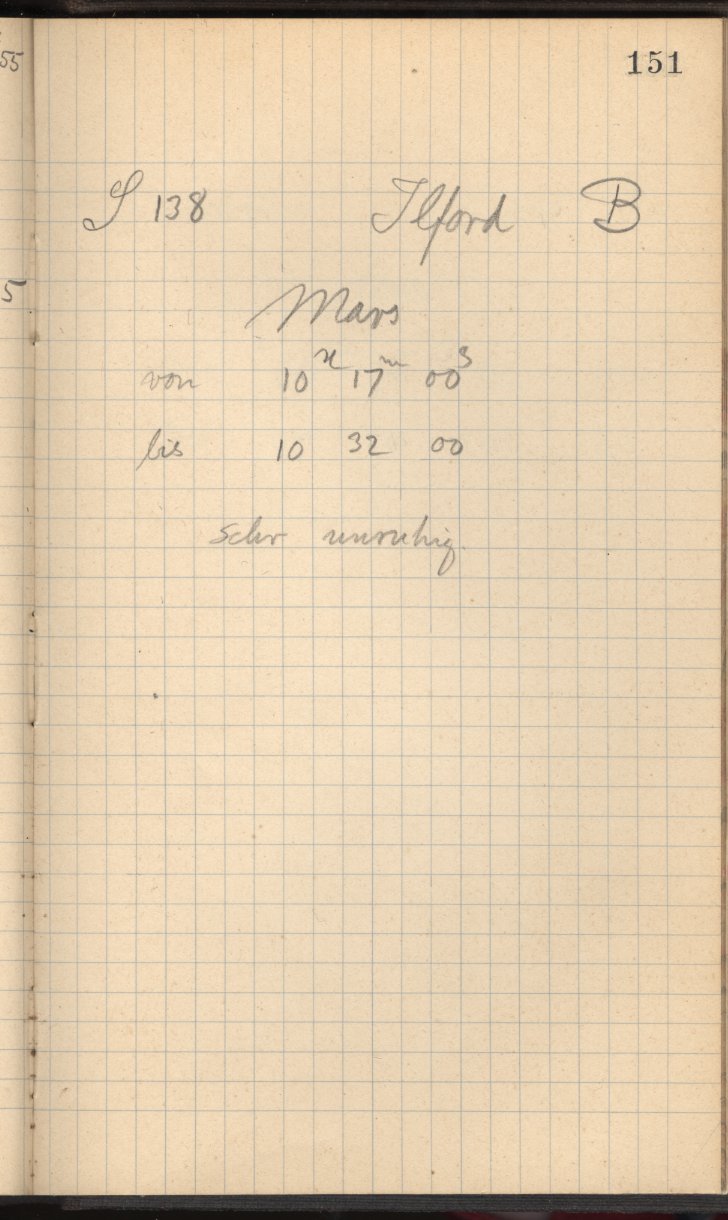 55
151
S 138 Ilford B
Mars
5
von 10h 17m 00s
bis 10 32 00
sehr unruhig.